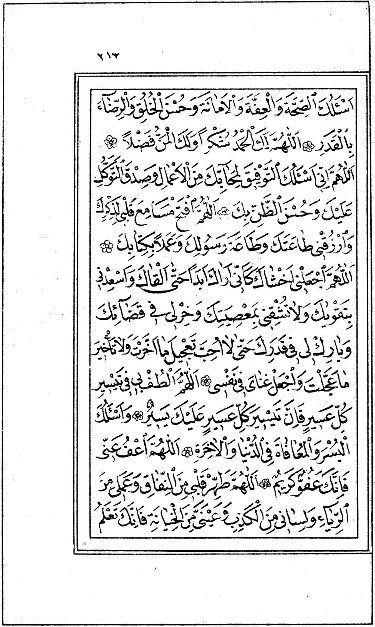 ٢١٣
اَسْئَلُكَ الصِّحَّةَ وَالْعِفَّةَ وَالْاَمَانَةَ وَحُسْنَ الْخُلُقِ وَالرِّضَاءَ
بِالْقَدَرِ ۞ اَللّٰهُمَّ لَكَ الْحَمْدُ شُكْرًا وَلَكَ الْمَنُّ فَضْلًا ۞
اَللّٰهُمَّ اِنِّى اَسْئَلُكَ التَّوْفِيقَ لِمَحَابِّكَ مِنَ الْاَعْمَالِ وَصِدْقَ التَّوَكُّلِ
عَلَيْكَ وَحُسْنَ الظَّنِّ بِكَ ۞ اَللّٰهُمَّ افْتَحْ مَسَامِعَ قَلْبِى لِذِكْرِكَ
وَارْزُقْنِى طَاعَتَكَ وَطَاعَةَ رَسُولِكَ وَعَمَلًا بِكِتَابِكَ ۞
اَللّٰهُمَّ اجْعَلْنِى اَخْشَاكَ كَاَنِّى اَرَاكَ اَبَدًا حَتّٰى اَلْقَاكَ وَاَسْعِدْنِى
بِتَقْوٰيكَ وَلَا تُشْقِنِى بِمَعْصِيَتِكَ وَخِرْلِى فِى قَضَائِكَ
وَبَارِكْ لِى فِى قَدَرِكَ حَتّٰى لَا اُحِبَّ تَعْجِيلَ مَا اَخَّرْتَ وَلَا تَأْخِيرَ
مَا عَجَّلْتَ وَاجْعَلْ غِنَاىَ فِى نَفْسِى ۞ اَللّٰهُمَّ الْطُفْ بِى فِى تَيْسِيرِ
كُلِّ عَسِيرٍ فَاِنَّ تَيْسِيرَ كُلِّ عَسِيرٍ عَلَيْكَ يَسِيرٌ ۞ وَاَسْئَلُكَ
الْيُسْرَ وَالْمُعَافَاةَ فِى الدُّنْيَا وَالْاٰخِرَةِ ۞ اَللّٰهُمَّ اعْفُ عَنِّى
فَاِنَّكَ عَفُوٌّ كَرِيمٌ ۞ اَللّٰهُمَّ طَهِّرْ قَلْبِى مِنَ النِّفَاقِ وَعَمَلِى مِنَ
الرِّيَاءِ وَلِسَانِى مِنَ الْكَذِبِ وَعَيْنِى مِنَ الْخِيَانَةِ فَاِنَّكَ تَعْلَمُ